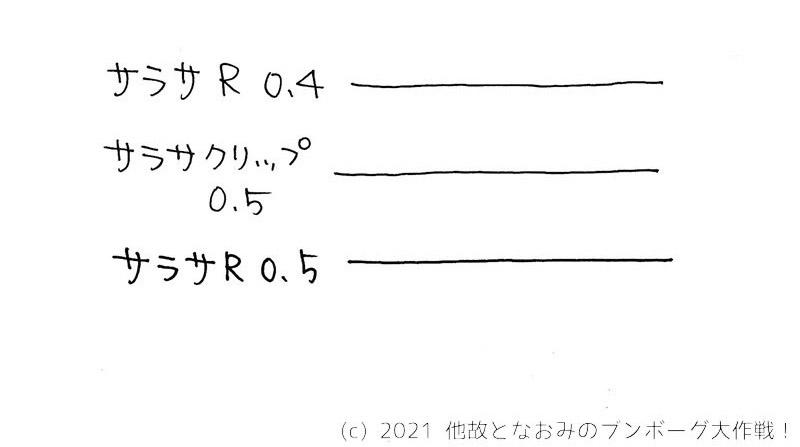 サラサ R 0.4
サラサクリップ
0.5
サラサR 0.5
(c) 2021 他故となおみのブンボーグ大作戦！